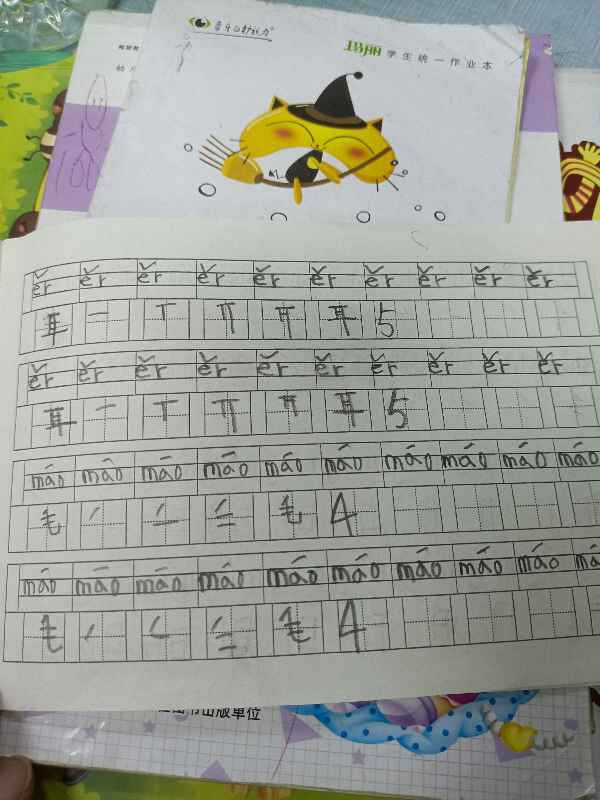 玛丽 学生统一作业本
100
ěr ěr ěr ěr ěr ěr ěr ěr ěr ěr
耳 一 丅 丌 耳 5
ěr ěr ěr ěr ěr ěr ěr ěr ěr ěr
耳 一 丅 丌 耳 5
máo máo máo máo máo máo máo máo máo máo
毛 ノ 毛 4
máo máo máo máo máo máo máo máo máo
毛 ノ 毛 4
图书出版单位